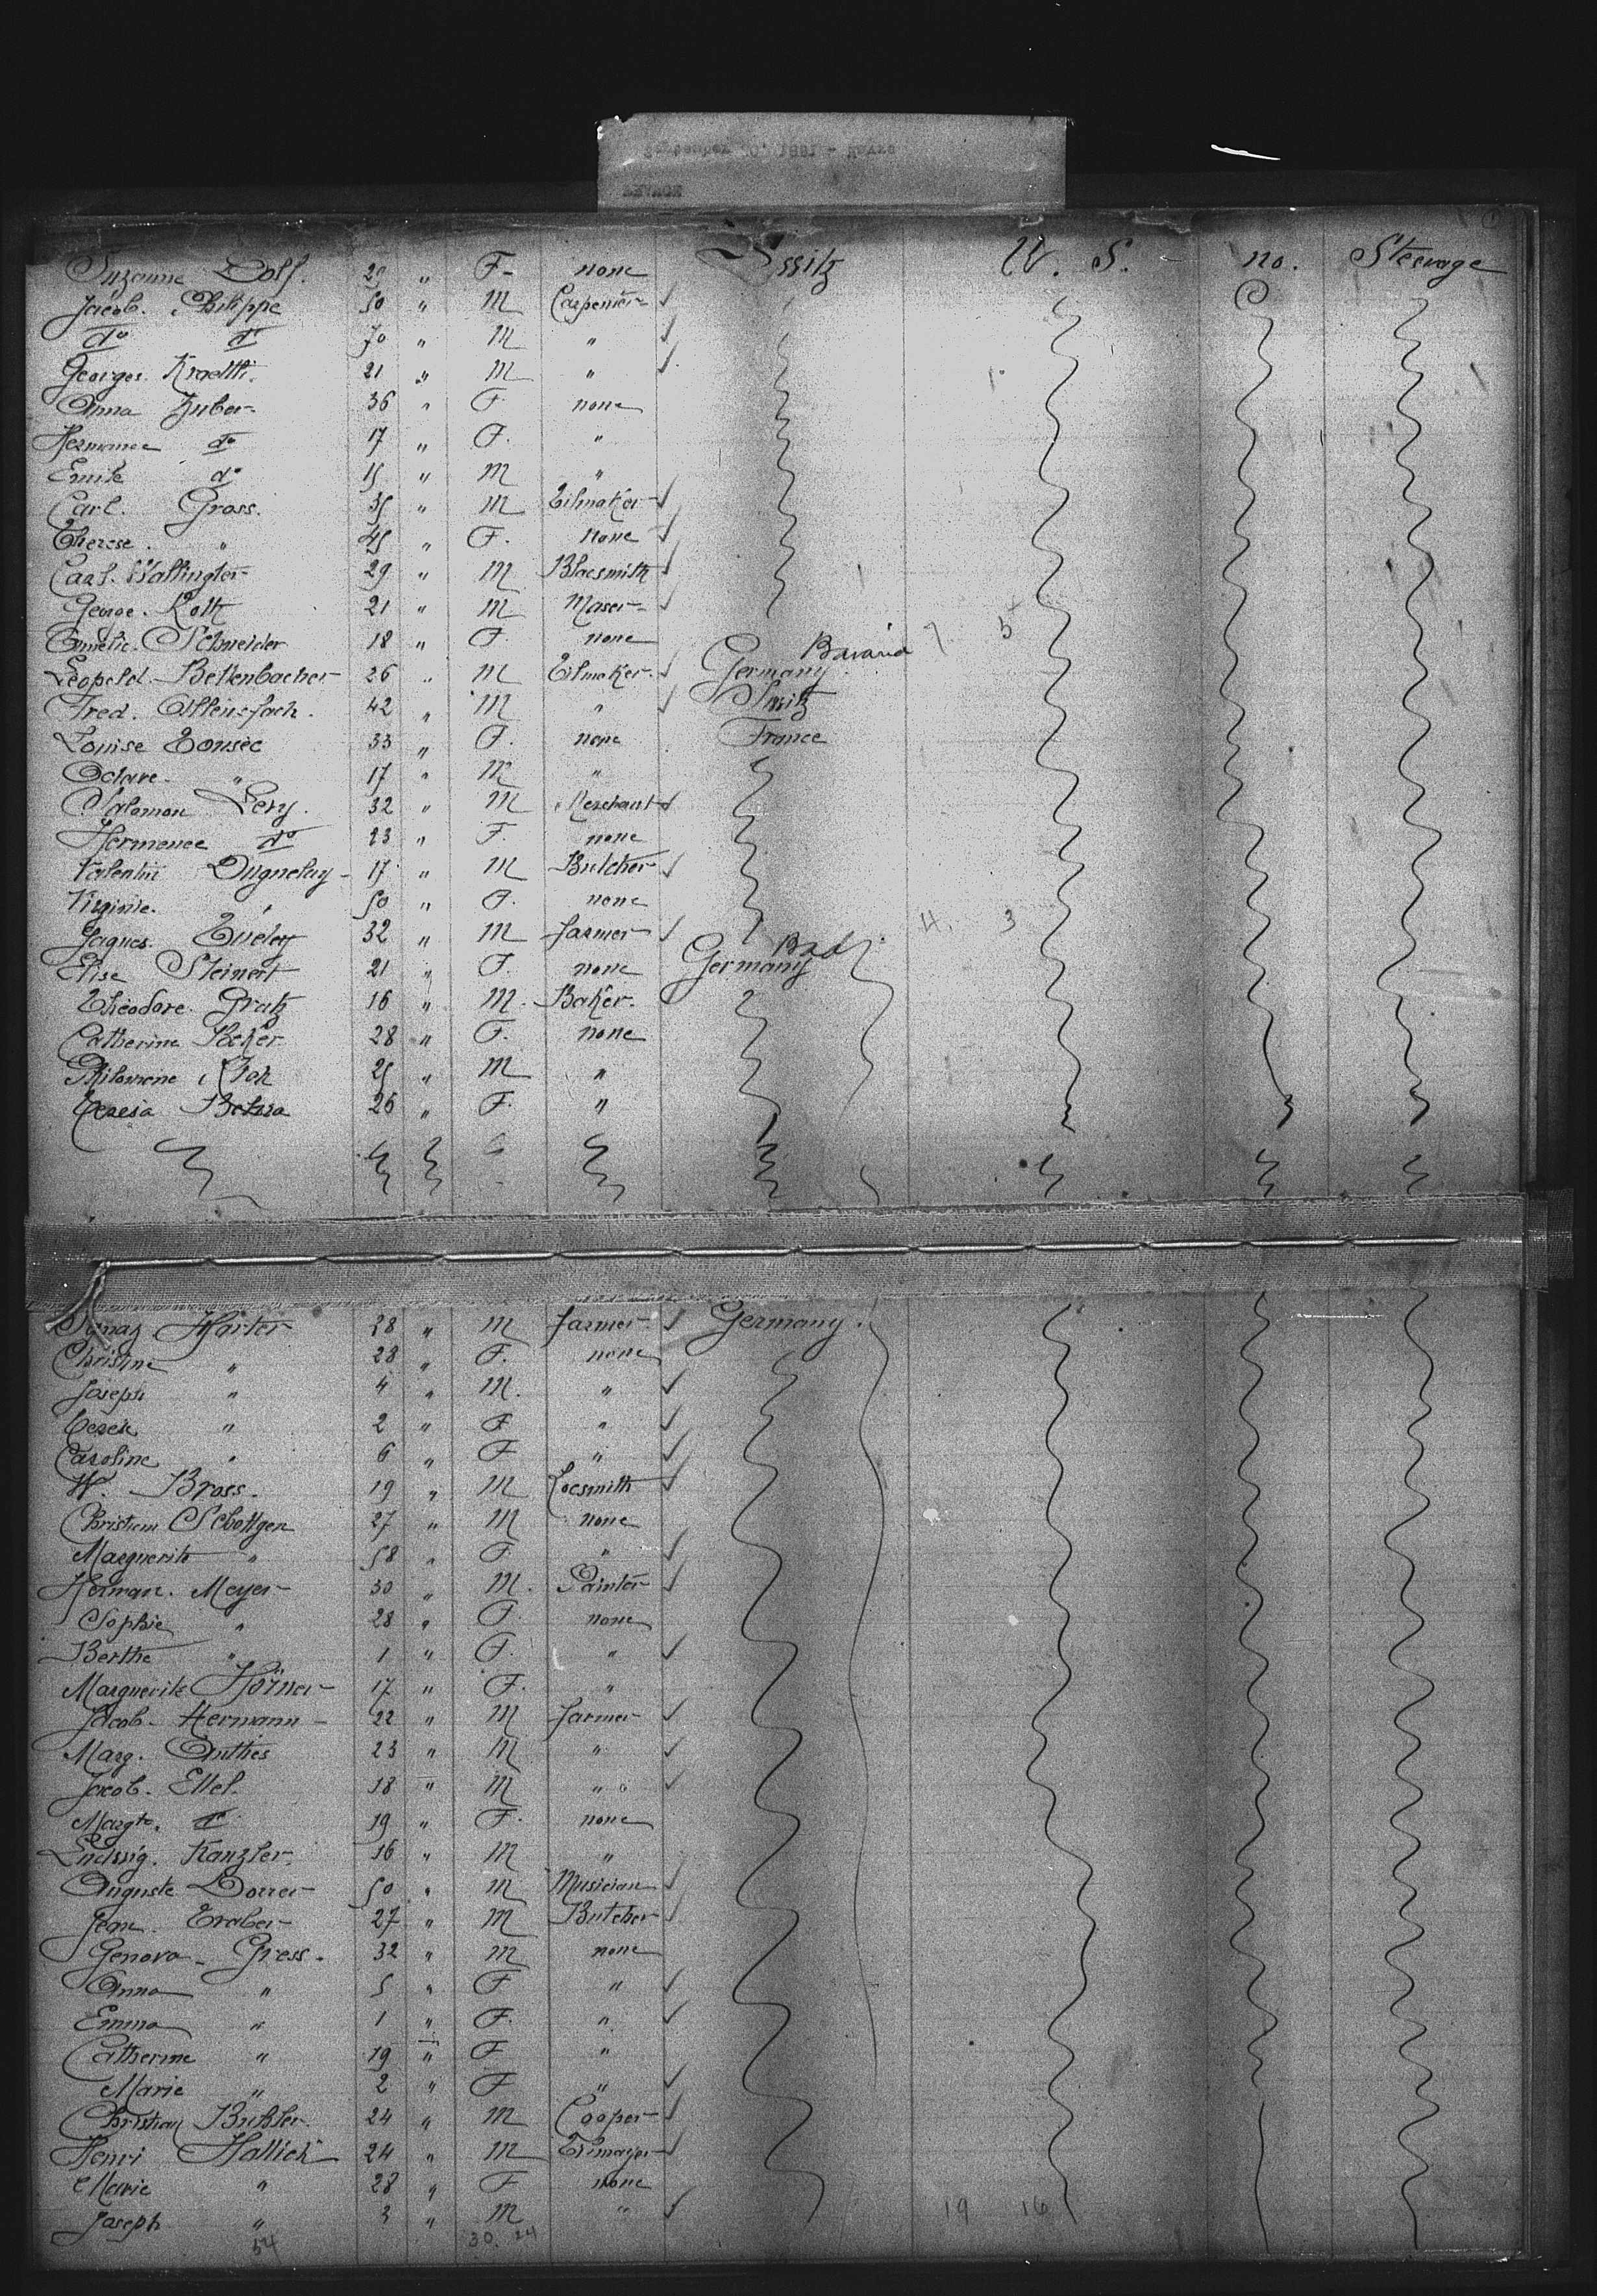 Suzanne Dolf. 29 " F- none Issitz U. S. no. Steerage
Jacob. Philippe 50 " M Carpenter
do do 70 " M "
Georges. Kraetth. 21 " M "
Anna Zuber 36 " F none
Hermance do 17 " F. "
Emile do 15 " M "
Carl. Gross. 35 " M Tilmaker
Therese. " 45 " F. none
Carl. Wallingter 29 " M Blacsmith
George. Roth 21 " M Maser
Emelie. Schneider 18 " F. none Bavaria 7. 5
Leopold Bettenbacher 26 " M Tilmaker Germany
Fred. Allensfach. 42 " M " Smitz
Louise Tousec 33 " F. none France
Octave " 17 " M "
Salomon Levy. 32 " M Merchant
Hermence do 23 " F. none
Valentin Dugnelay 17 " M Butcher
Virginie. " 50 " F. none
Jaques. 32 " M farmer 4. 3
Elise Steinert 21 " F. none Germany Bad
Théodore. Gratz 16 " M. Baker.
Catherine Becker 28 " F. none
Philomene 25 " M "
Teresia 26 " F. "
Ignaz Harter 38 " M farmer Germany.
Christine " 28 " F. none
Joseph " 4 " M. "
" 2 " F "
Caroline " 6 " F "
W. Brass. 19 " M Locsmith
Christian Schottgen 27 " M none
Marguerite " 58 " F. "
Herman. Meyer 30 " M. Painter
Sophie " 28 " F. none
Berthe " 1 " F. "
Marguerite Hörner 17 " F. "
Jacob Hermann 22 " M farmer
Marg. Anthes 23 " M "
Jacob. Ellel. 18 " M "
Margte. do 19 " F. none
Ludwig. Kanzler. 16 " M "
Auguste Dorrer 50 " M Musician
Jean. Traber 27 " M Butcher
Genova. Gress. 32 " M none
Anna " 5 " F "
Emma " 1 " F. "
Catherine " 19 " F "
Marie " 2 " F "
Christian Buhler 24 " M Cooper
Henri Hallich 24 " M
Marie " 28 " F none
Joseph " 3 " M " 19 16
54 30. 24